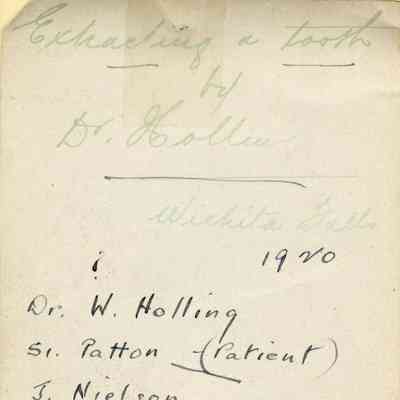 Extracting a tooth
by
Dr. Hollin
Wichita Falls
? 1920
Dr. W. Holling
Si. Patton (Patient)
J. Nielson